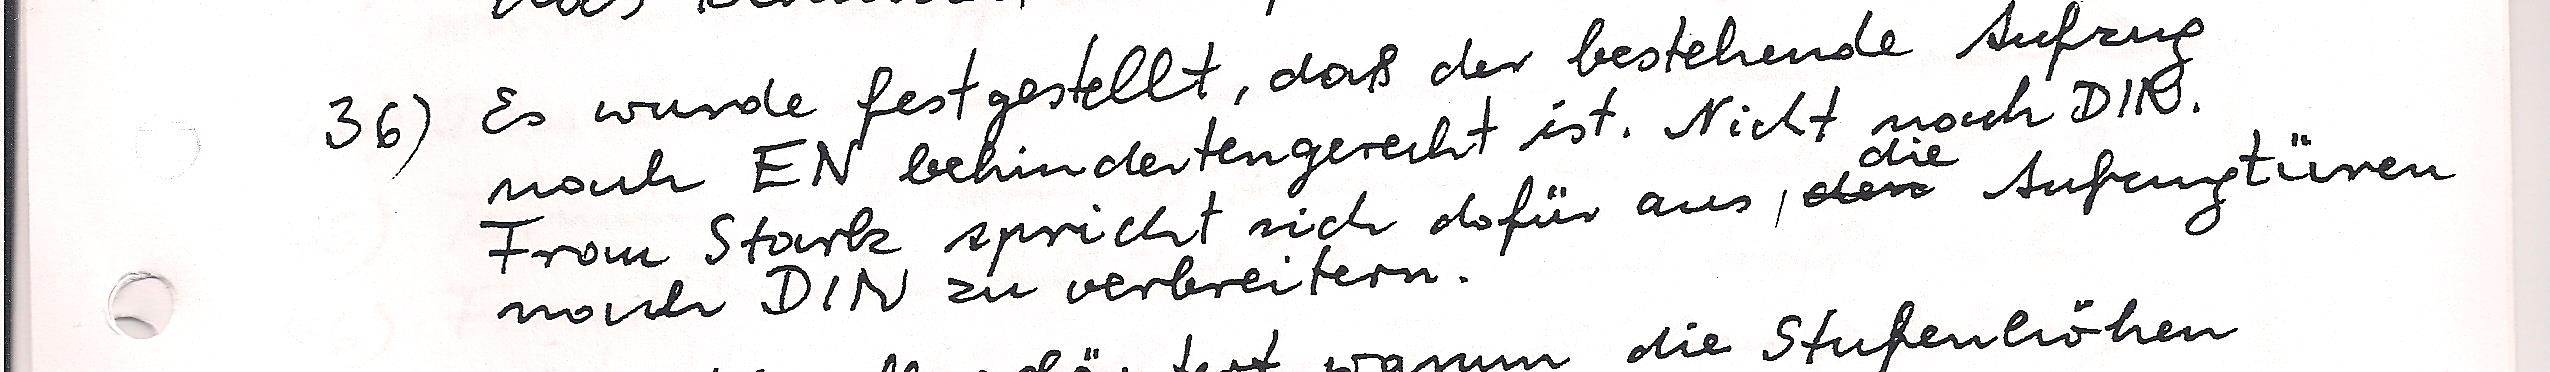 36) Es wurde festgestellt, daß der bestehende Aufzug
nach EN behindertengerecht ist. Nicht nach DIN.
die
Frau Stark spricht sich dafür aus, den Aufzugtüren
nach DIN zu verbreitern.
warum die Stufenhöhen